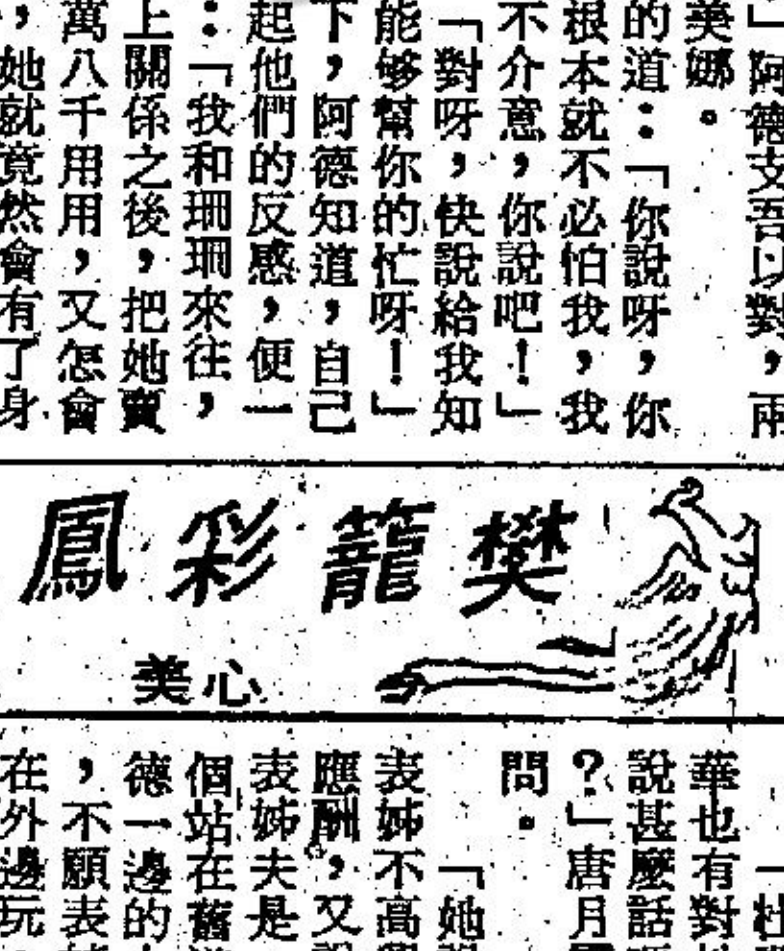 」阿德支吾以對，兩
美娜。
的道：「你說呀，你
根本就不必怕我，我
不介意，你說吧！」
「對呀，快說給我知
能够幫你的忙呀！」
下，阿德知道，自己
起他們的反感，便一
：「我和珊珊來往，
上關係之後，把她賣
萬八千用用，又怎會
，她就竟然會有了身
樊籠彩鳳
心美
華也有對
說甚麼話
？」唐月
問。
「她
表姊不高
應酬，又
表姊夫是
個站在舊
德一邊的
，不願表
在外邊玩